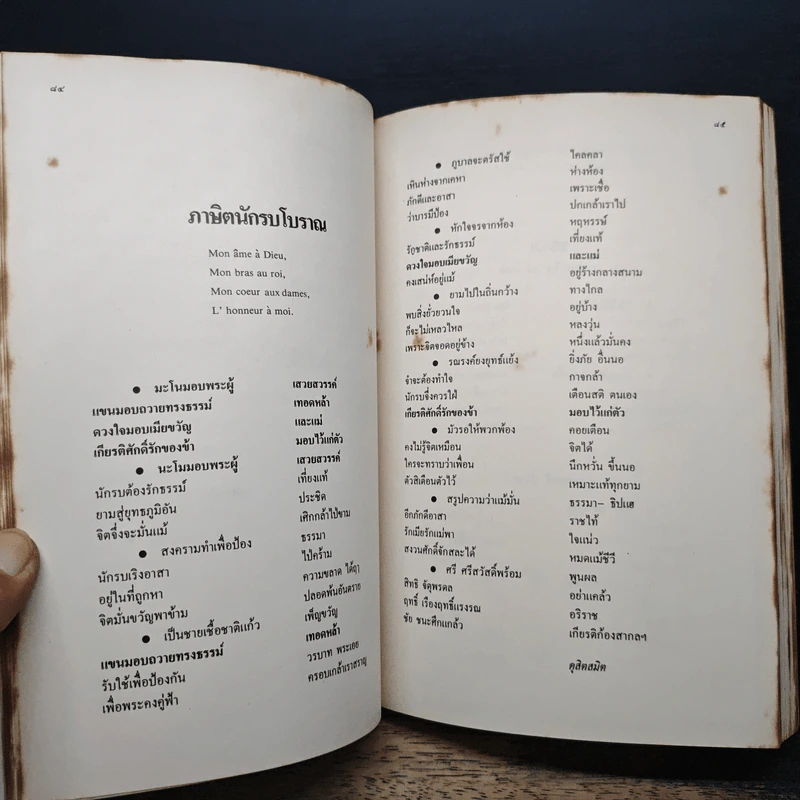 ๘๔
ภาษิตนักรบโบราณ
Mon âme à Dieu,
Mon bras au roi,
Mon coeur aux dames,
L' honneur à moi.
● มะโนมอบพระผู้ เสวยสวรรค์
แขนมอบถวายทรงธรรม์ เทอดหล้า
ดวงใจมอบเมียขวัญ และแม่
เกียรติศักดิ์รักของข้า มอบไว้แก่ตัว
● นะโมมอบพระผู้ เสวยสวรรค์
นักรบต้องรักธรรม์ เที่ยงแท้
ยามสู่ยุทธภูมิอัน ประชิด
จิตจึ่งจะมั่นแม้ เศิกกล้าไป่ขาม
● สงครามทำเพื่อป้อง ธรรมา
นักรบเริงอาสา ไป่คร้าม
อยู่ในที่ถูกหา ความขลาด ได้ฤา
จิตมั่นขวัญพาข้าม ปลอดพ้นอันตราย
● เป็นชายเชื้อชาติแก้ว เพ็ญขวัญ
แขนมอบถวายทรงธรรม์ เทอดหล้า
รับใช้เพื่อป้องกัน วรบาท พระเอย
เพื่อพระคงคู่ฟ้า ครอบเกล้าเราสราญ
๘๕
● ภูบาลจะตรัสใช้ ไคลคลา
เหินห่างจากเคหา ห่างห้อง
ภักดีและอาสา เพราะเชื่อ
ว่าบารมีป้อง ปกเกล้าเราไป
● หักใจจรจากห้อง หฤหรรษ์
รักชาติและรักธรรม์ เที่ยงแท้
ดวงใจมอบเมียขวัญ และแม่
คงเสน่ห์อยู่แม้ อยู่ร้างกลางสนาม
● ยามไปในถิ่นกว้าง ทางไกล
พบสิ่งยั่วยวนใจ อยู่บ้าง
ก็จะไม่เหลวไหล หลงวุ่น
เพราะจิตจอดอยู่ข้าง หนึ่งแล้วมั่นคง
● รณรงค์ยงยุทธ์แย้ง ยิ่งภัย อื่นนอ
จำจะต้องทำใจ กาจกล้า
นักรบจึ่งควรใฝ่ เตือนสติ ตนเอง
เกียรติศักดิ์รักของข้า มอบไว้แก่ตัว
● มัวรอให้พวกพ้อง คอยเตือน
คงไม่รู้จิตเหมือน จิตได้
ใครจะทราบว่าเพื่อน นึกหวั่น ขึ้นนอ
ตัวสิเตือนตัวไว้ เหมาะแท้ทุกยาม
● สรูปความว่าแม้มั่น ธรรมา– ธิปแฮ
อีกภักดีอาสา ราชไท้
รักเมียรักแม่พา ใจแน่ว
สงวนศักดิ์จักสละได้ หมดแม้ชีวี
● ศรี ศรีสวัสดิ์พร้อม พูนผล
สิทธิ จัตุพรดล อย่าแคล้ว
ฤทธิ์ เรืองฤทธิ์แรงรณ อริราช
ชัย ชนะศึกแกล้ว เกียรติก้องสากลฯ
ดุสิตสมิต